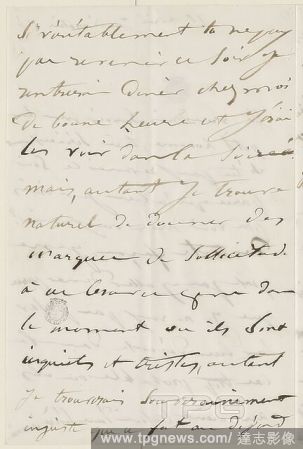 Si véritablement tu ne peux
pas revenir ce soir je
rentrerai dîner chez moi
de bonne heure et j'irai
les voir dans la soirée
mais, autant je trouve
naturel de donner des
marques de sollicitude
à ce
le moment où ils sont
inquiets et tristes, autant
je trouverais souverainement
injuste
TPG
www.tpgnews.com/達志影像